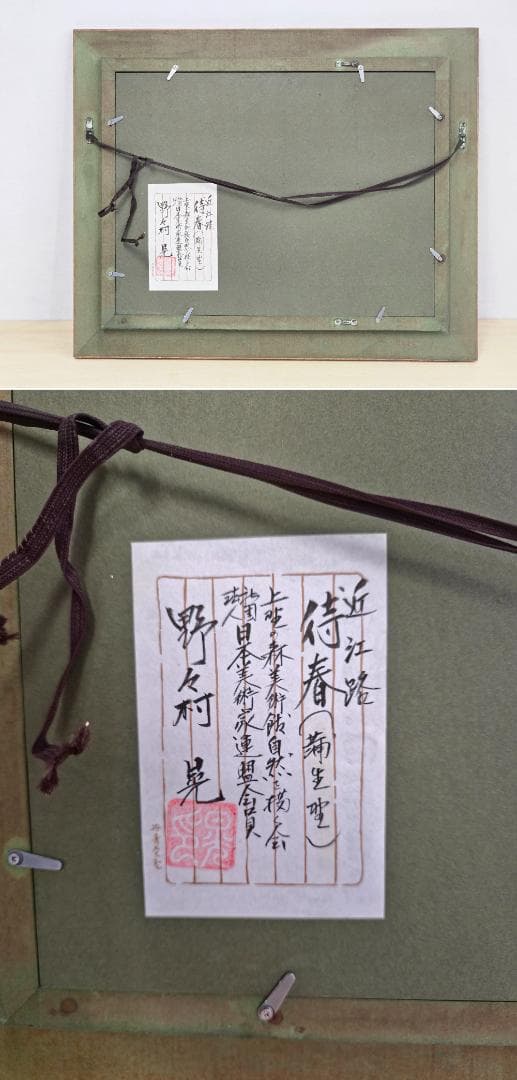 近江路
待春（蒲生野）
上野の森美術館自然を描く会
社団法人 日本美術家連盟会員
野々村 晃